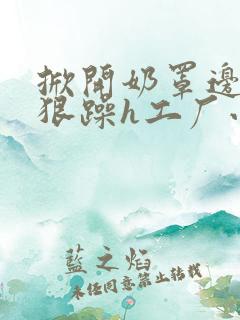 掀開奶罩邊
狠躁h工厂、
藍之焰
未任同意禁止转载